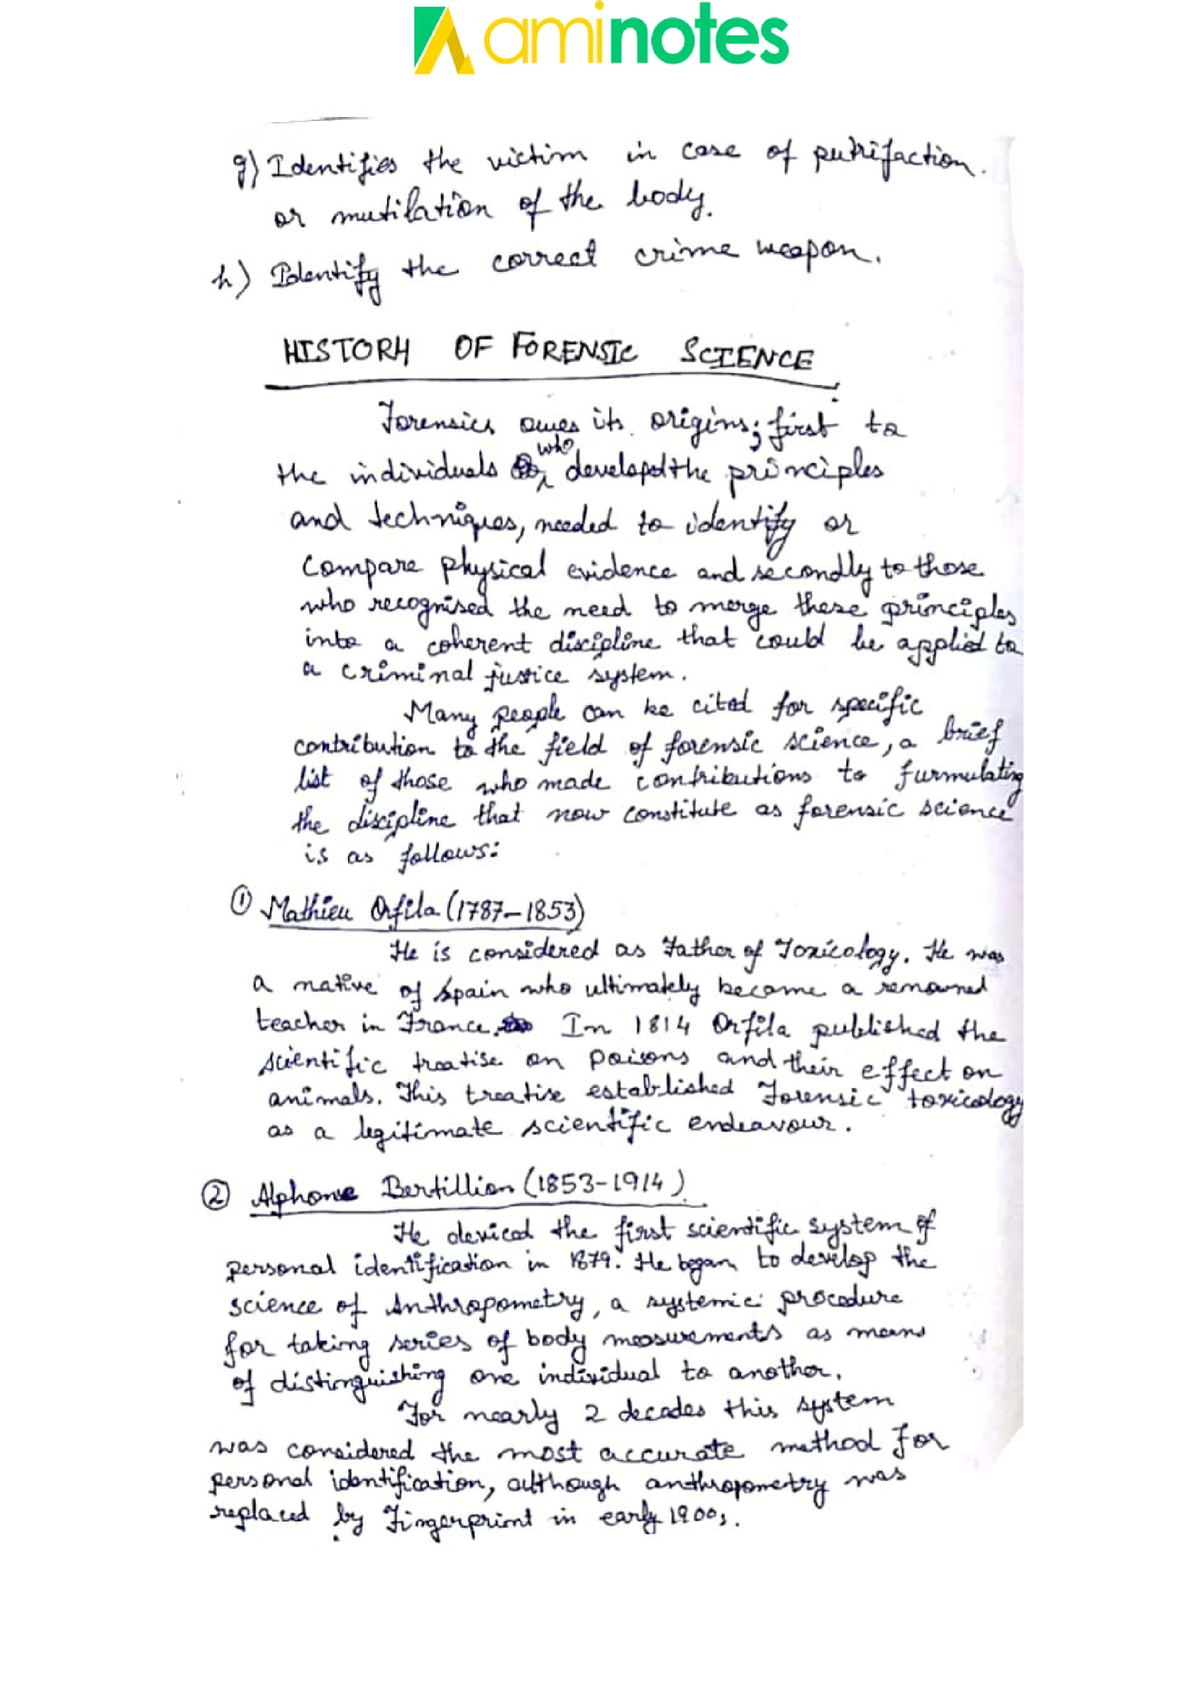 aminotes
g) Identifies the victim in case of putrifaction.
or mutilation of the body.
h) Identify the correct crime weapon.
HISTORY OF FORENSIC SCIENCE
Forensics owes its origins; first to
the individuals who developed the principles
and techniques, needed to identify or
compare physical evidence and secondly to those
who recognised the need to merge these principles
into a coherent discipline that could be applied to
a criminal justice system.
Many people can be cited for specific
contribution to the field of forensic science, a brief
list of those who made contributions to furmulating
the discipline that now constitute as forensic science
is as follows:
① Mathieu Orfila (1787-1853)
He is considered as Father of Toxicology. He was
a native of Spain who ultimately become a renowned
teacher in France. In 1814 Orfila published the
scientific treatise on poisons and their effect on
animals. This treatise established Forensic toxicology
as a legitimate scientific endeavour.
② Alphonse Bertillion (1853-1914)
He deviced the first scientific system of
personal identification in 1879. He began to develop the
science of Anthropometry, a systemic procedure
for taking series of body measurements as means
of distinguishing one individual to another.
For nearly 2 decades this system
was considered the most accurate method for
personal identification, although anthropometry was
replaced by Fingerprint in early 1900s.